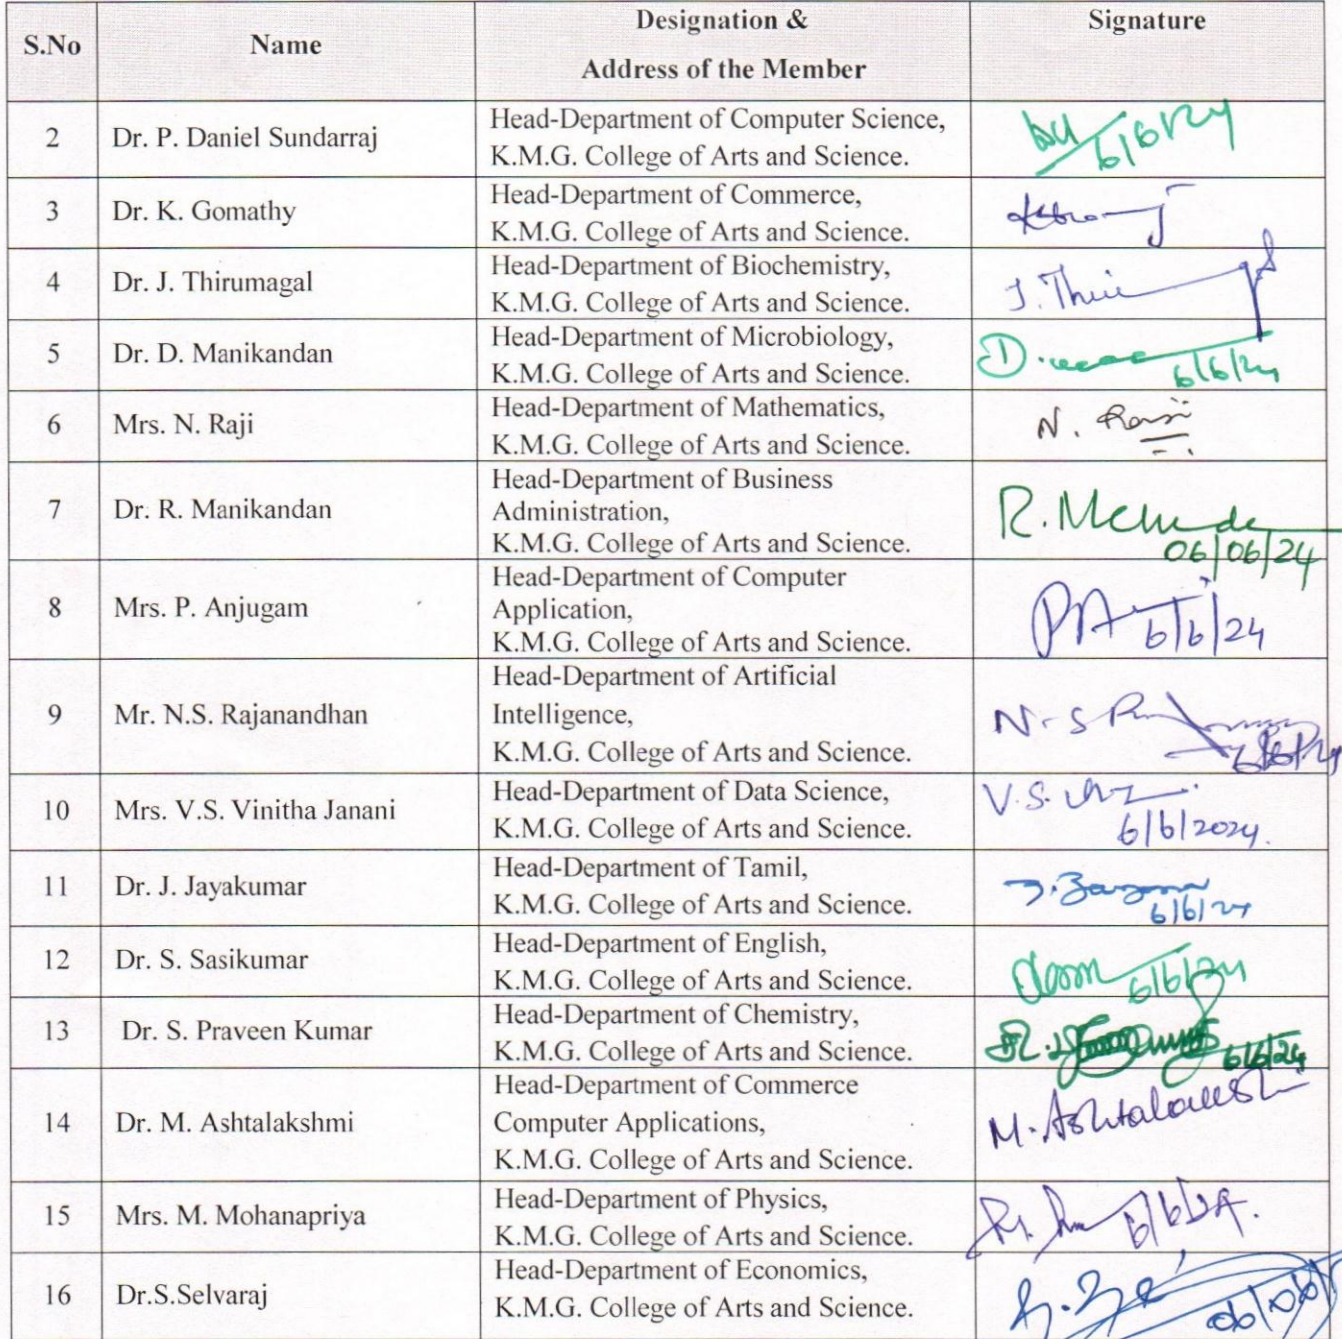 S.No
Name
Designation &
Address of the Member
Signature
2
Dr. P. Daniel Sundarraj
Head-Department of Computer Science,
K.M.G. College of Arts and Science.
6/6/24
3
Dr. K. Gomathy
Head-Department of Commerce,
K.M.G. College of Arts and Science.
4
Dr. J. Thirumagal
Head-Department of Biochemistry,
K.M.G. College of Arts and Science.
J.
5
Dr. D. Manikandan
Head-Department of Microbiology,
K.M.G. College of Arts and Science.
D.
6/6/24
6
Mrs. N. Raji
Head-Department of Mathematics,
K.M.G. College of Arts and Science.
N. Raji
7
Dr. R. Manikandan
Head-Department of Business
Administration,
K.M.G. College of Arts and Science.
R.
06/06/24
8
Mrs. P. Anjugam
Head-Department of Computer
Application,
K.M.G. College of Arts and Science.
6/6/24
9
Mr. N.S. Rajanandhan
Head-Department of Artificial
Intelligence,
K.M.G. College of Arts and Science.
N. S
6/6/24
10
Mrs. V.S. Vinitha Janani
Head-Department of Data Science,
K.M.G. College of Arts and Science.
V.S.
6/6/2024.
11
Dr. J. Jayakumar
Head-Department of Tamil,
K.M.G. College of Arts and Science.
6/6/24
12
Dr. S. Sasikumar
Head-Department of English,
K.M.G. College of Arts and Science.
6/6/24
13
Dr. S. Praveen Kumar
Head-Department of Chemistry,
K.M.G. College of Arts and Science.
6/6/24
14
Dr. M. Ashtalakshmi
Head-Department of Commerce
Computer Applications,
K.M.G. College of Arts and Science.
M. Ashtalakshmi
15
Mrs. M. Mohanapriya
Head-Department of Physics,
K.M.G. College of Arts and Science.
6/6/24.
16
Dr.S.Selvaraj
Head-Department of Economics,
K.M.G. College of Arts and Science.